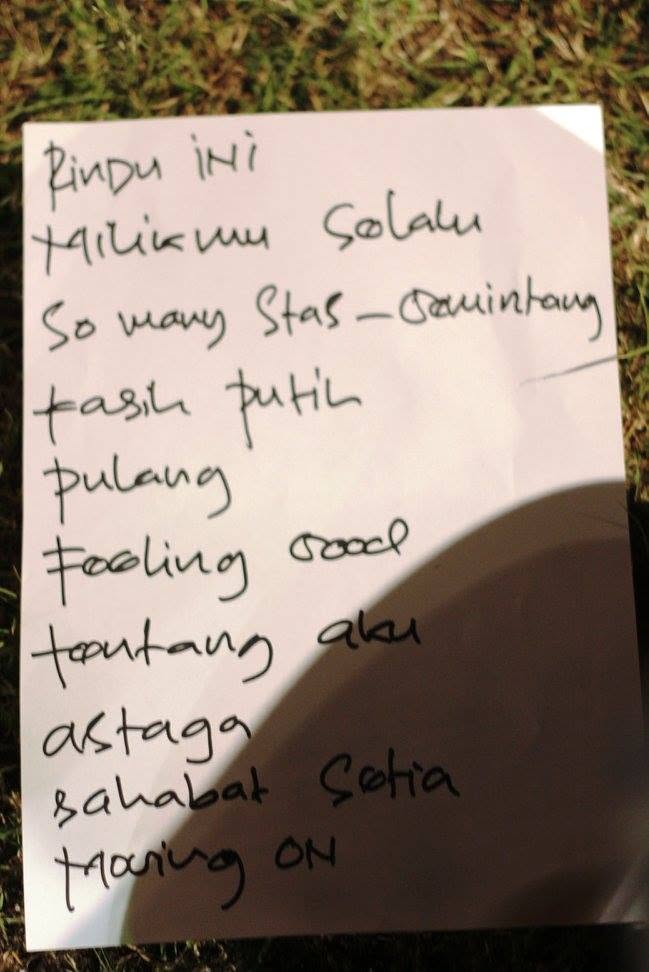 Rindu ini
Milikmu Selalu
So many Stas - Gemintang
Kasih putih
pulang
Feeling Good
tentang aku
astaga
sahabat Setia
Moving ON